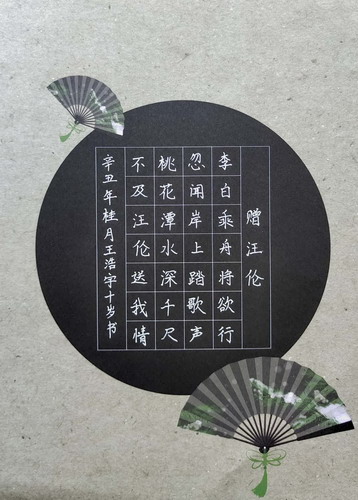 赠汪伦
李白乘舟将欲行
忽闻岸上踏歌声
桃花潭水深千尺
不及汪伦送我情
辛丑年桂月王浩宇十岁书